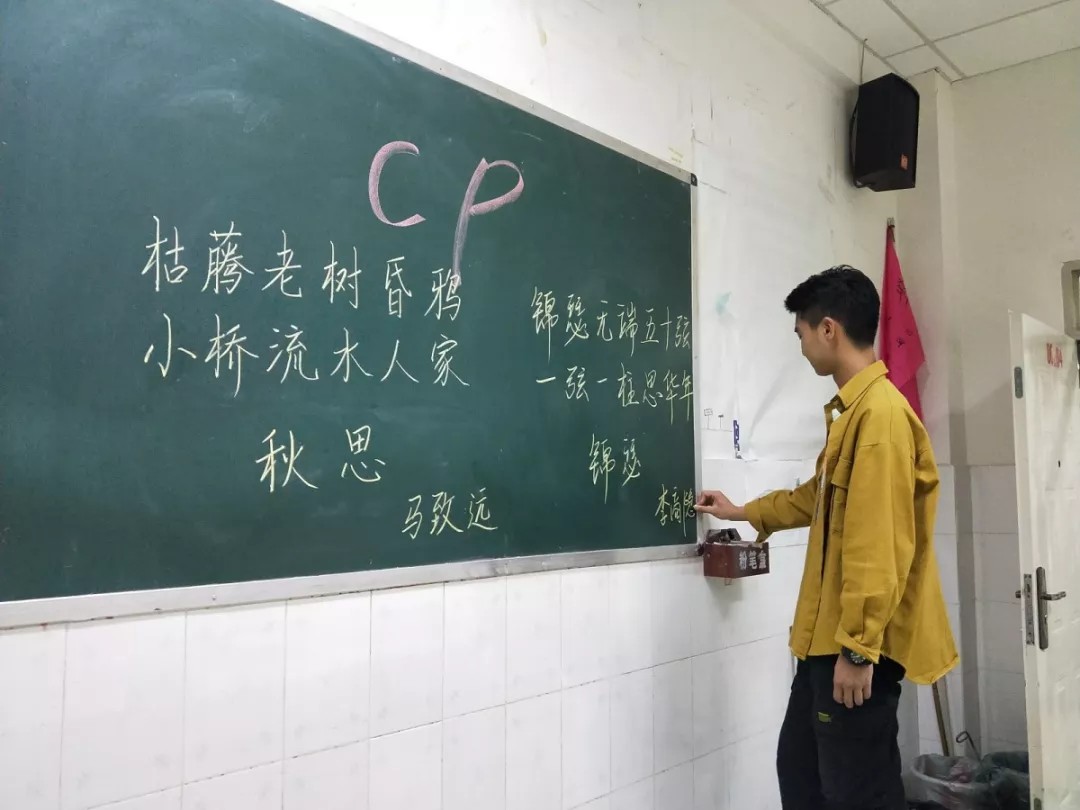 CP
枯腾老树昏鸦
小桥流水人家
秋思
马致远
锦瑟无瑞五十弦
一弦一柱思华年
锦瑟
李商隐
粉笔盒